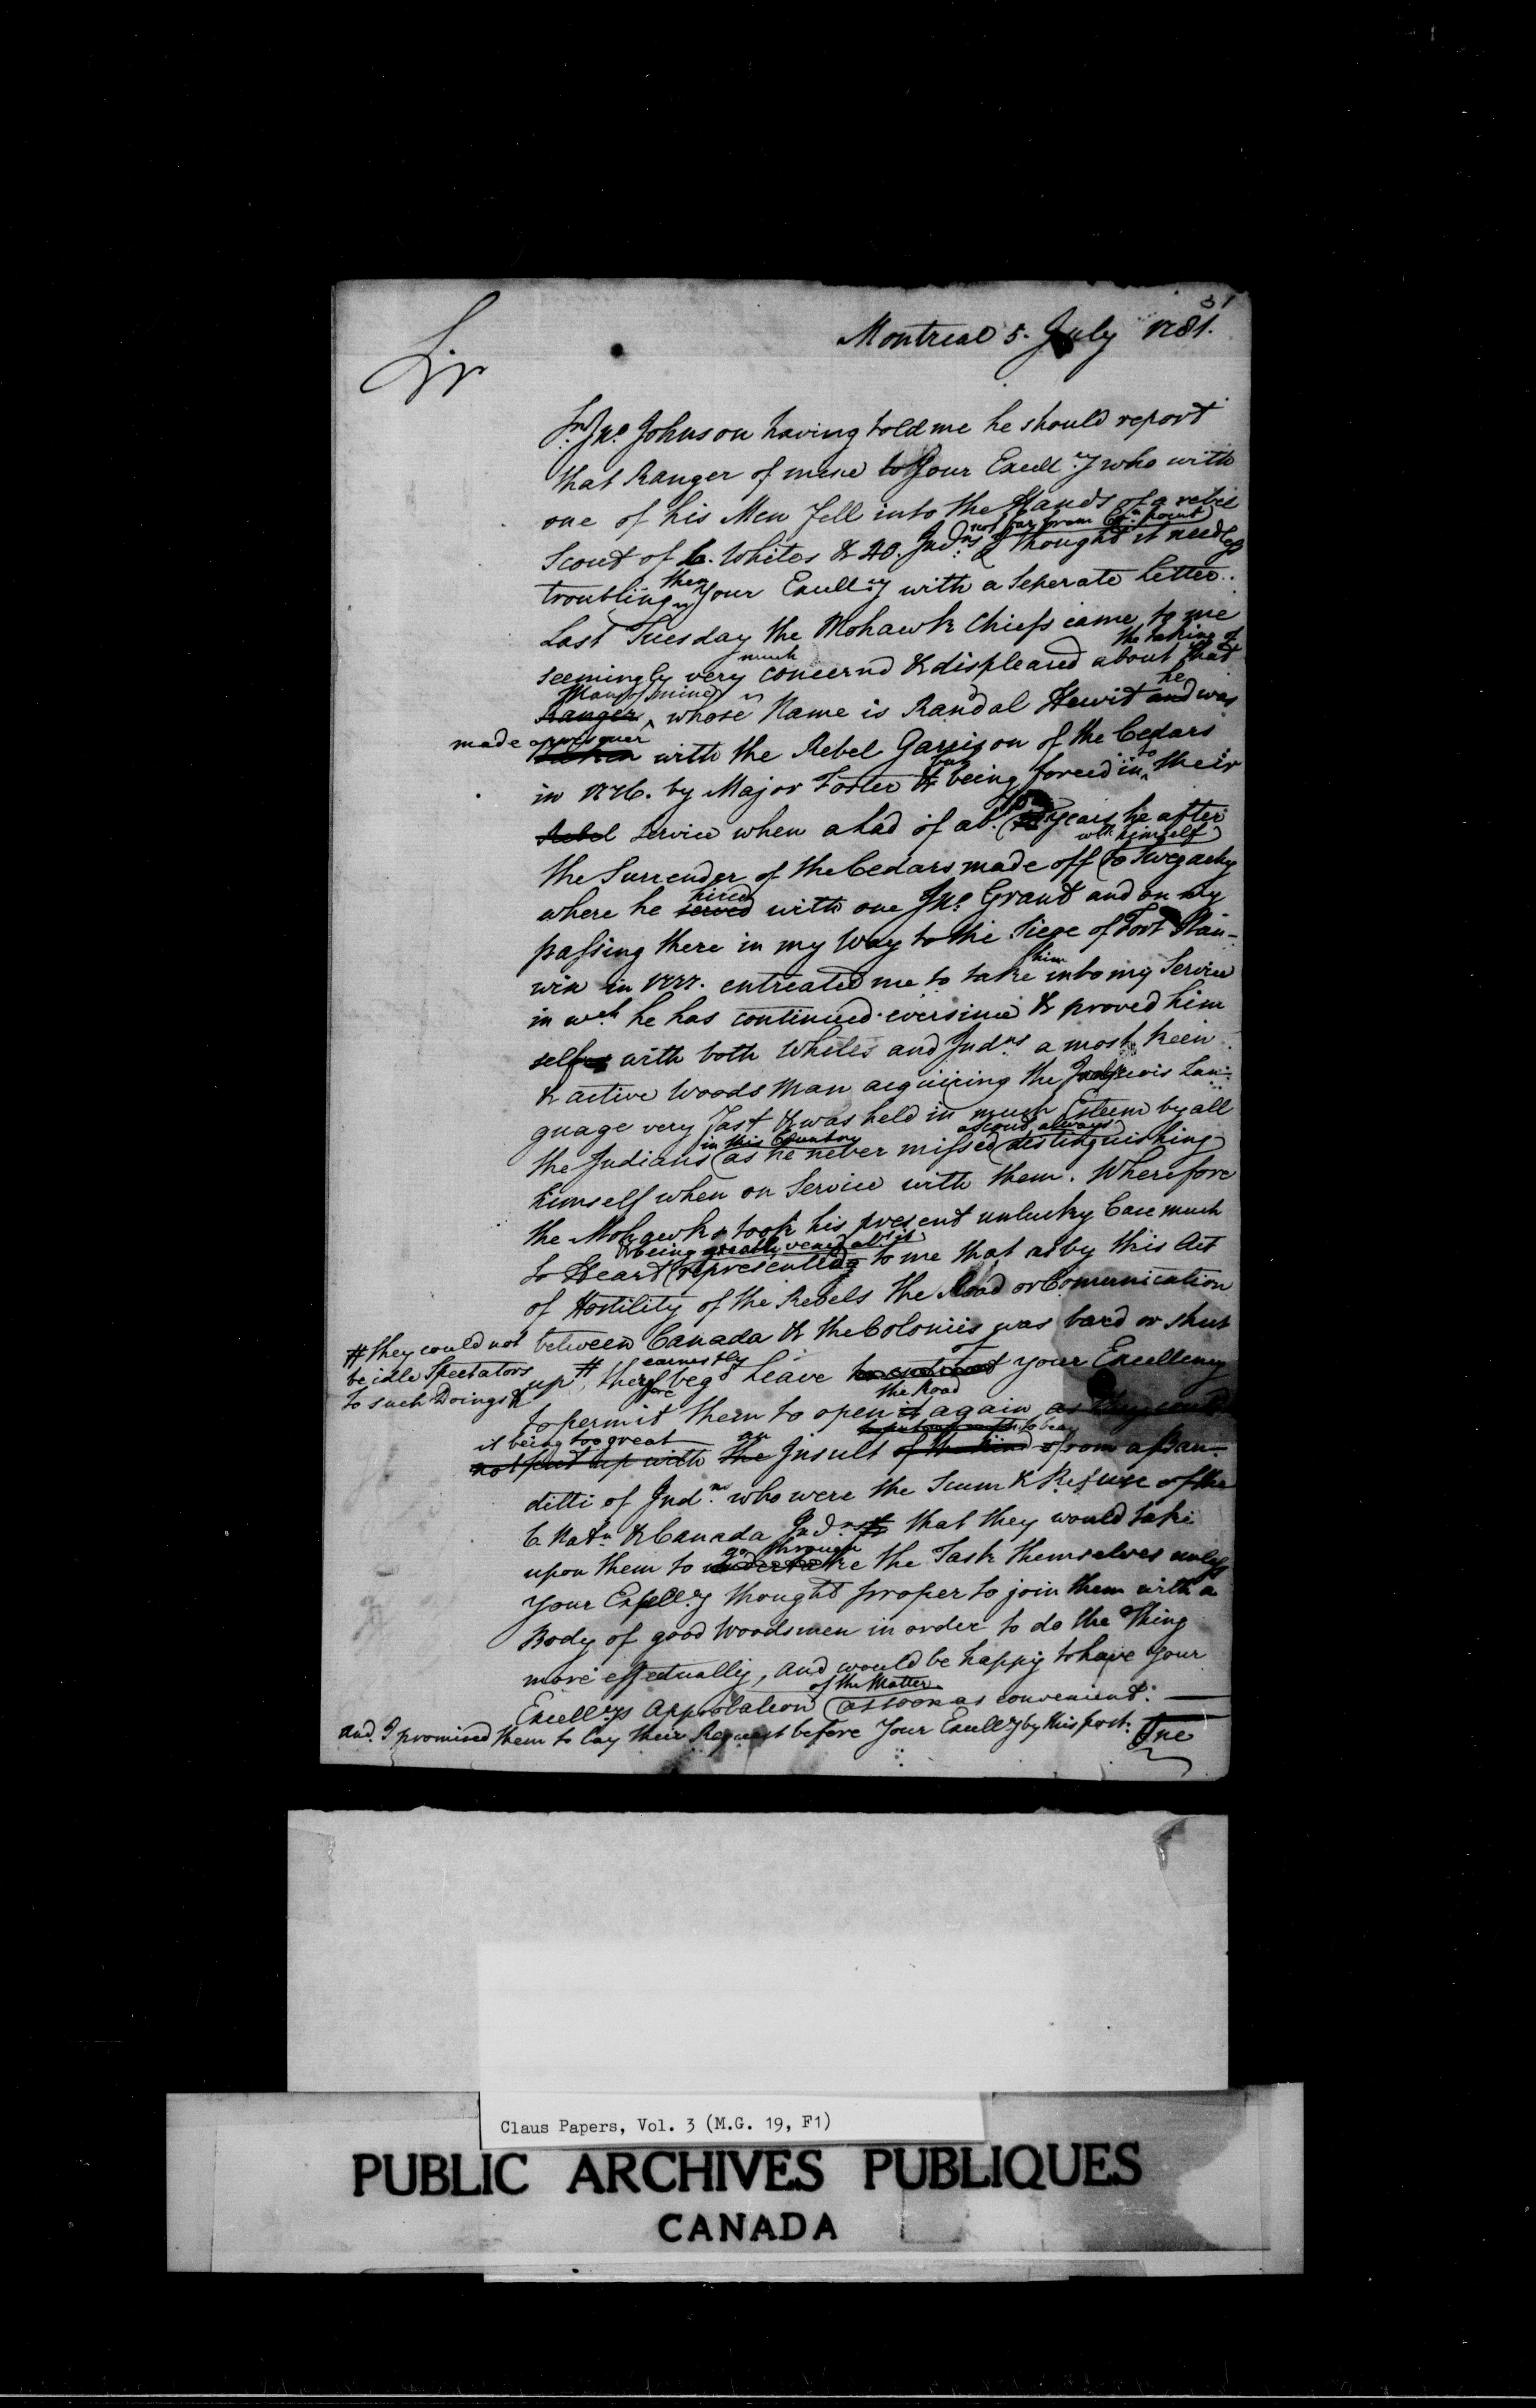 31
Montreal 5. July 1781.
Sir
Sr. Jno. Johnson having told me he should report
that Ranger of mine to Your Excell:y who with
one of his Men fell into the Hands of a rebel
not far from Cn. point
Scout of 6. Whites & 20. Indns. I thought it needless
then
troubling Your Excell:y with a Seperate Letter.
Last Tuesday the Mohawk Chiefs came to me
much the taking of
seemingly very concernd & displeased about that
Man of mine he
Ranger whose Name is Randal Hewit and was
made a prisoner
taken with the Rebel Garrison of the Cedars
to
in 1776. by Major Foster & being forced in their
Rebel Service when a lad of abt. years he after
wth. himself
the Surrender of the Cedars made off to Swegachy
hired
where he served with one Jno. Grant and on my
passing there in my Way to the Siege of Fort Stan-
him
wix in 1777. entreated me to take into my Service
in wch. he has continued eversince & proved him
self with both Whites and Indns a most keen
& active Woods Man acquiring the Lan-
guage very fast & was held in much Esteem by all
in this Country a Scout always
the Indians as he never missed distinguishing
himself when on Service with them. Wherefore
the Mohawks took his present unlucky Case much
& being greatly vexed abt. it
to Heart representing to me that as by this Act
of Hostility of the Rebels the Road or Comunication
between Canada & the Colonies was bard or shut
# they could not
be idle Spectators
to such Doings &
earnestly of
up # therefore begd. leave your Excellency
the Road
to permit them to open it again as they could
it being too great an to bear
not put up with the Insult of the kind from a Ban-
ditti of Indns. who were the Scum & Refuse of the
6. Natn. & Canada Indns. that they would take
go through
upon them to undertake the Task themselves unless
Your Excell:y thought proper to join them with a
Body of good Woodsmen in order to do the Thing
more effectually, and would be happy to have Your
of the Matter
Excell:ys Approbation as soon as convenient.
and I promised them to lay their Request before Your Excell:y by this post. One
Claus Papers, Vol. 3 (M.G. 19, F1)
PUBLIC ARCHIVES PUBLIQUES
CANADA